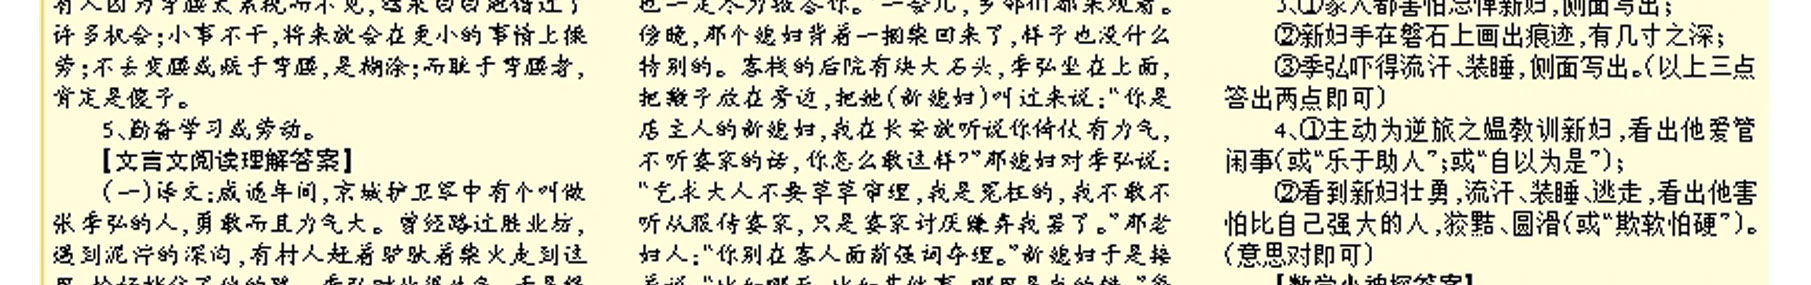 许多机会;小事不干,将来就会在更小的事情上操
劳;不去变腰或耻于弯腰,是糊涂;而耻于弯腰者,
肯定是傻子。
5、勤奋学习或劳动。
【文言文阅读理解答案】
(一)译文:咸通年间,京城护卫军中有个叫做
张季弘的人,勇敢而且力气大。曾经路过胜业坊,
遇到泥泞的深沟,有村人赶着驴驮着柴火走到这
也一定尽力报答你。”一会儿,乡邻们都来观看。
傍晚,那个媳妇背着一捆柴回来了,样子也没什么
特别的。客栈的后院有块大石头,季弘坐在上面,
把鞭子放在旁边,把她(新媳妇)叫过来说:“你是
店主人的新媳妇,我在长安就听说你倚仗有力气,
不听婆家的话,你怎么敢这样?”那媳妇对季弘说:
“乞求大人不要草草审理,我是冤枉的,我不敢不
听从服侍婆家,只是婆家讨厌嫌弃我罢了。”那老
妇人:“你别在客人面前强词夺理。”新媳妇于是接
3、①家人都害怕忌惮新妇,侧面写出;
②新妇手在磐石上画出痕迹,有几寸之深;
③季弘吓得流汗、装睡,侧面写出。(以上三点
答出两点即可)
4、①主动为逆旅之媪教训新妇,看出他爱管
闲事(或“乐于助人”;或“自以为是”);
②看到新妇壮勇,流汗、装睡、逃走,看出他害
怕比自己强大的人,狡黠、圆滑(或“欺软怕硬”)。
(意思对即可)